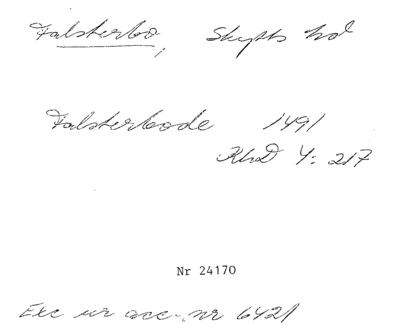 Falsterbo, Skytts hd
Falsterbode 1491
KhD 4: 217
Nr 24170
Exc ur acc.nr 6421